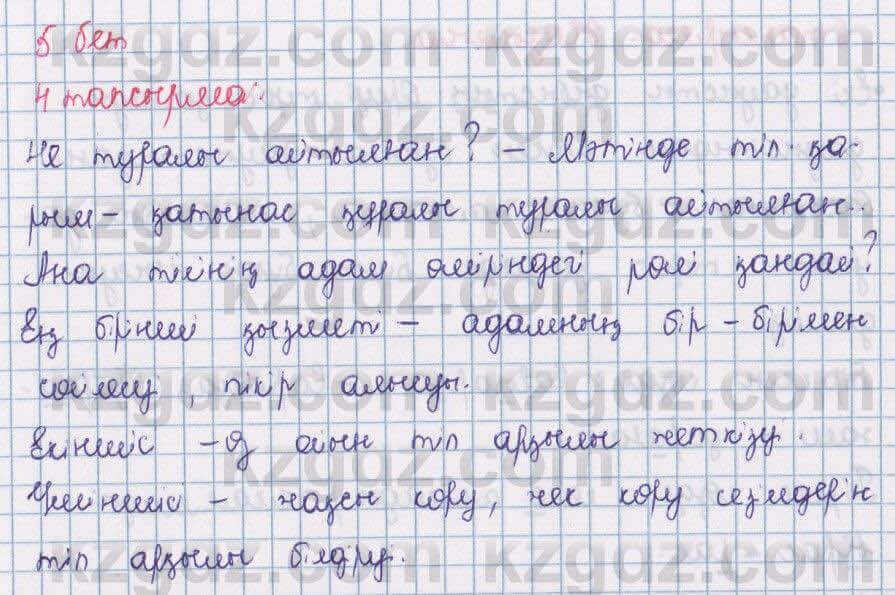 5 бет
4 тапсырма:
Не туралы айтылған? – Мәтінде тіл қа-
рым – қатынас құралы туралы айтылған.
Ана тілінің адам өміріндегі рөлі қандай?
Ең бірінші қызметі – адамның бір – бірімен
сөйлесу, пікір алысуы.
Екіншісі – өз ойын тіл арқылы жеткізу.
Үшіншісі – жақсы көру, жек көру сезімдерін
тіл арқылы білдіру.
kzgdz.com